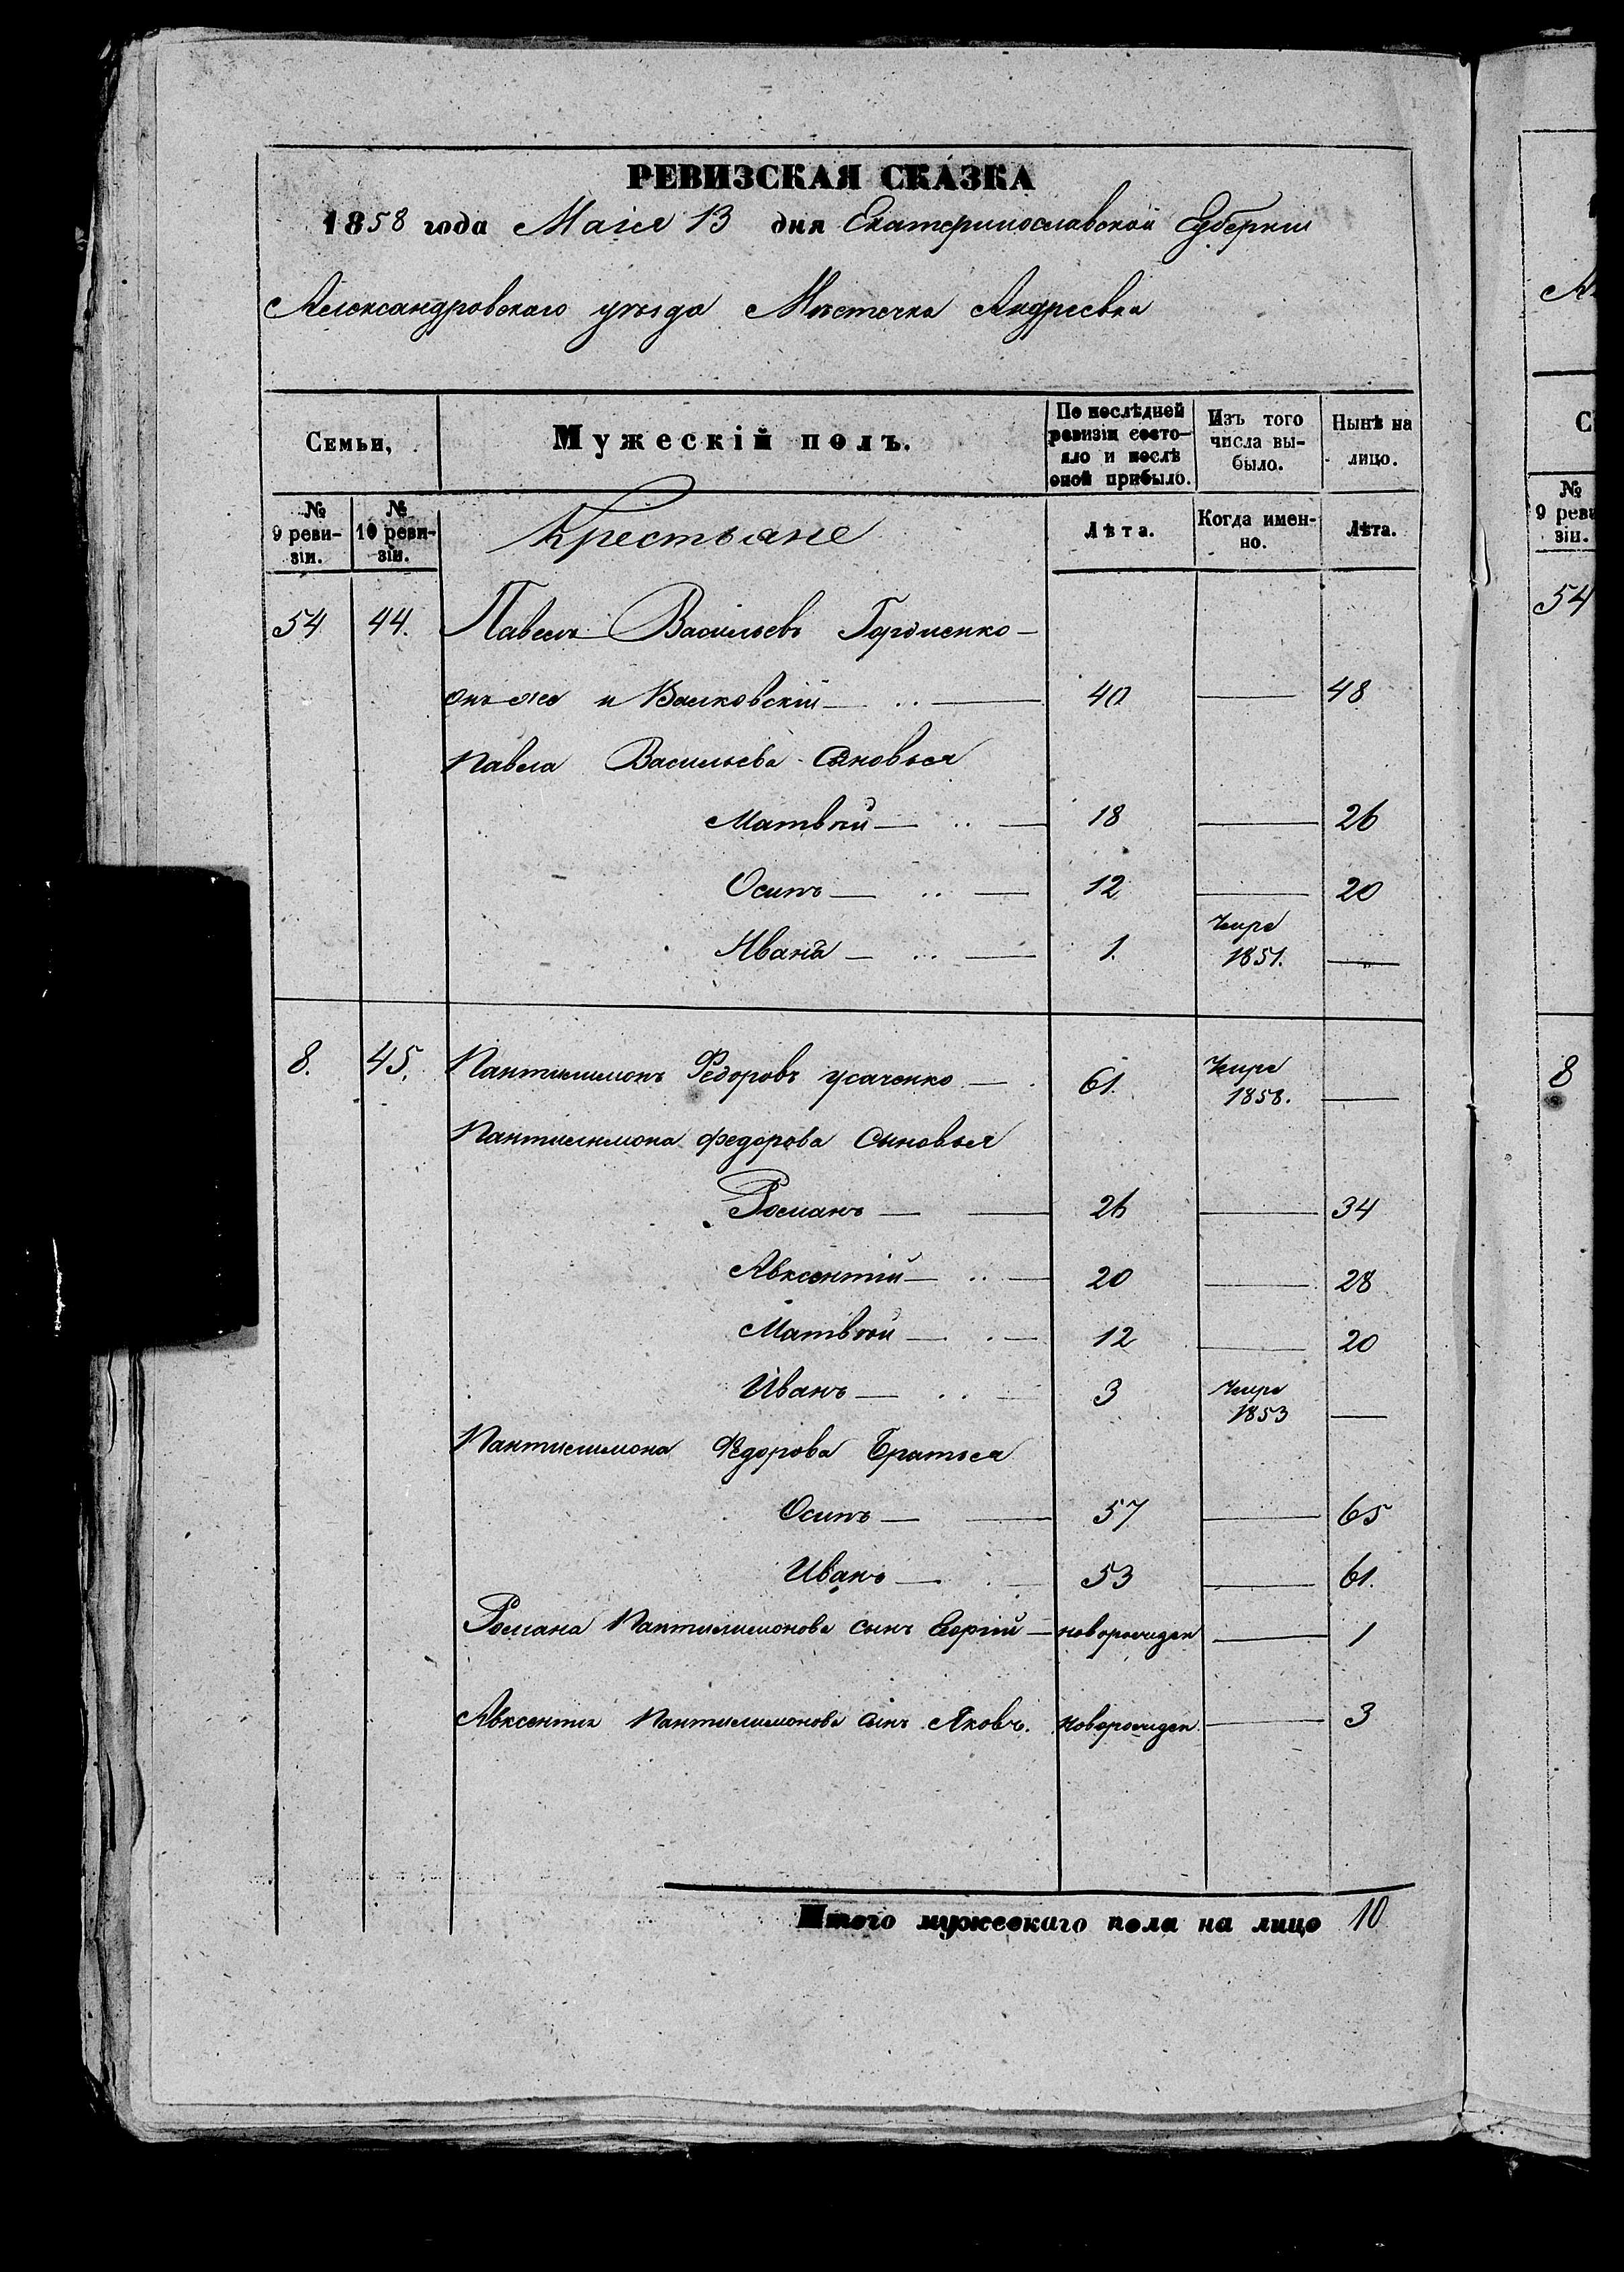 РЕВИЗСКАЯ СКАЗКА
1858 года Маія 13 дня Екатеринославской Губерніи
Александровскаго уѣзда Мѣстечка Андреевка
Семьи, Мужескій полъ. По послѣдней ревизіи состояло и послѣ оной прибыло. Изъ того числа выбыло. Ныне на лицо.
№ 9 ревизіи. № 10 ревизіи. Крестьяне Лѣта. Когда именно. Лѣта.
54 44. Павелъ Васильевъ
онъ же и 40 — 48
Павла Васильева Сыновья
Матвѣй 18 — 26
Осипъ 12 — 20
Иванъ 1. умре 1851. —
8. 45. Пантилимонъ Федоровъ Усаченко 61. умре 1858. —
Пантилимона Федорова Сыновья
Романъ 26 — 34
Авксентій 20 — 28
Матвѣй 12 — 20
Иванъ 3 умре 1853 —
Пантилимона Федорова Братья
Осипъ 57 — 65
Иванъ 53 — 61.
Романа Пантилимонова сынъ новорожден — 1
Авксентия Пантилимонова сынъ Яковъ. новорожден — 3
Итого мужескаго пола на лицо 10
№ 9 реви зіи.
54
8